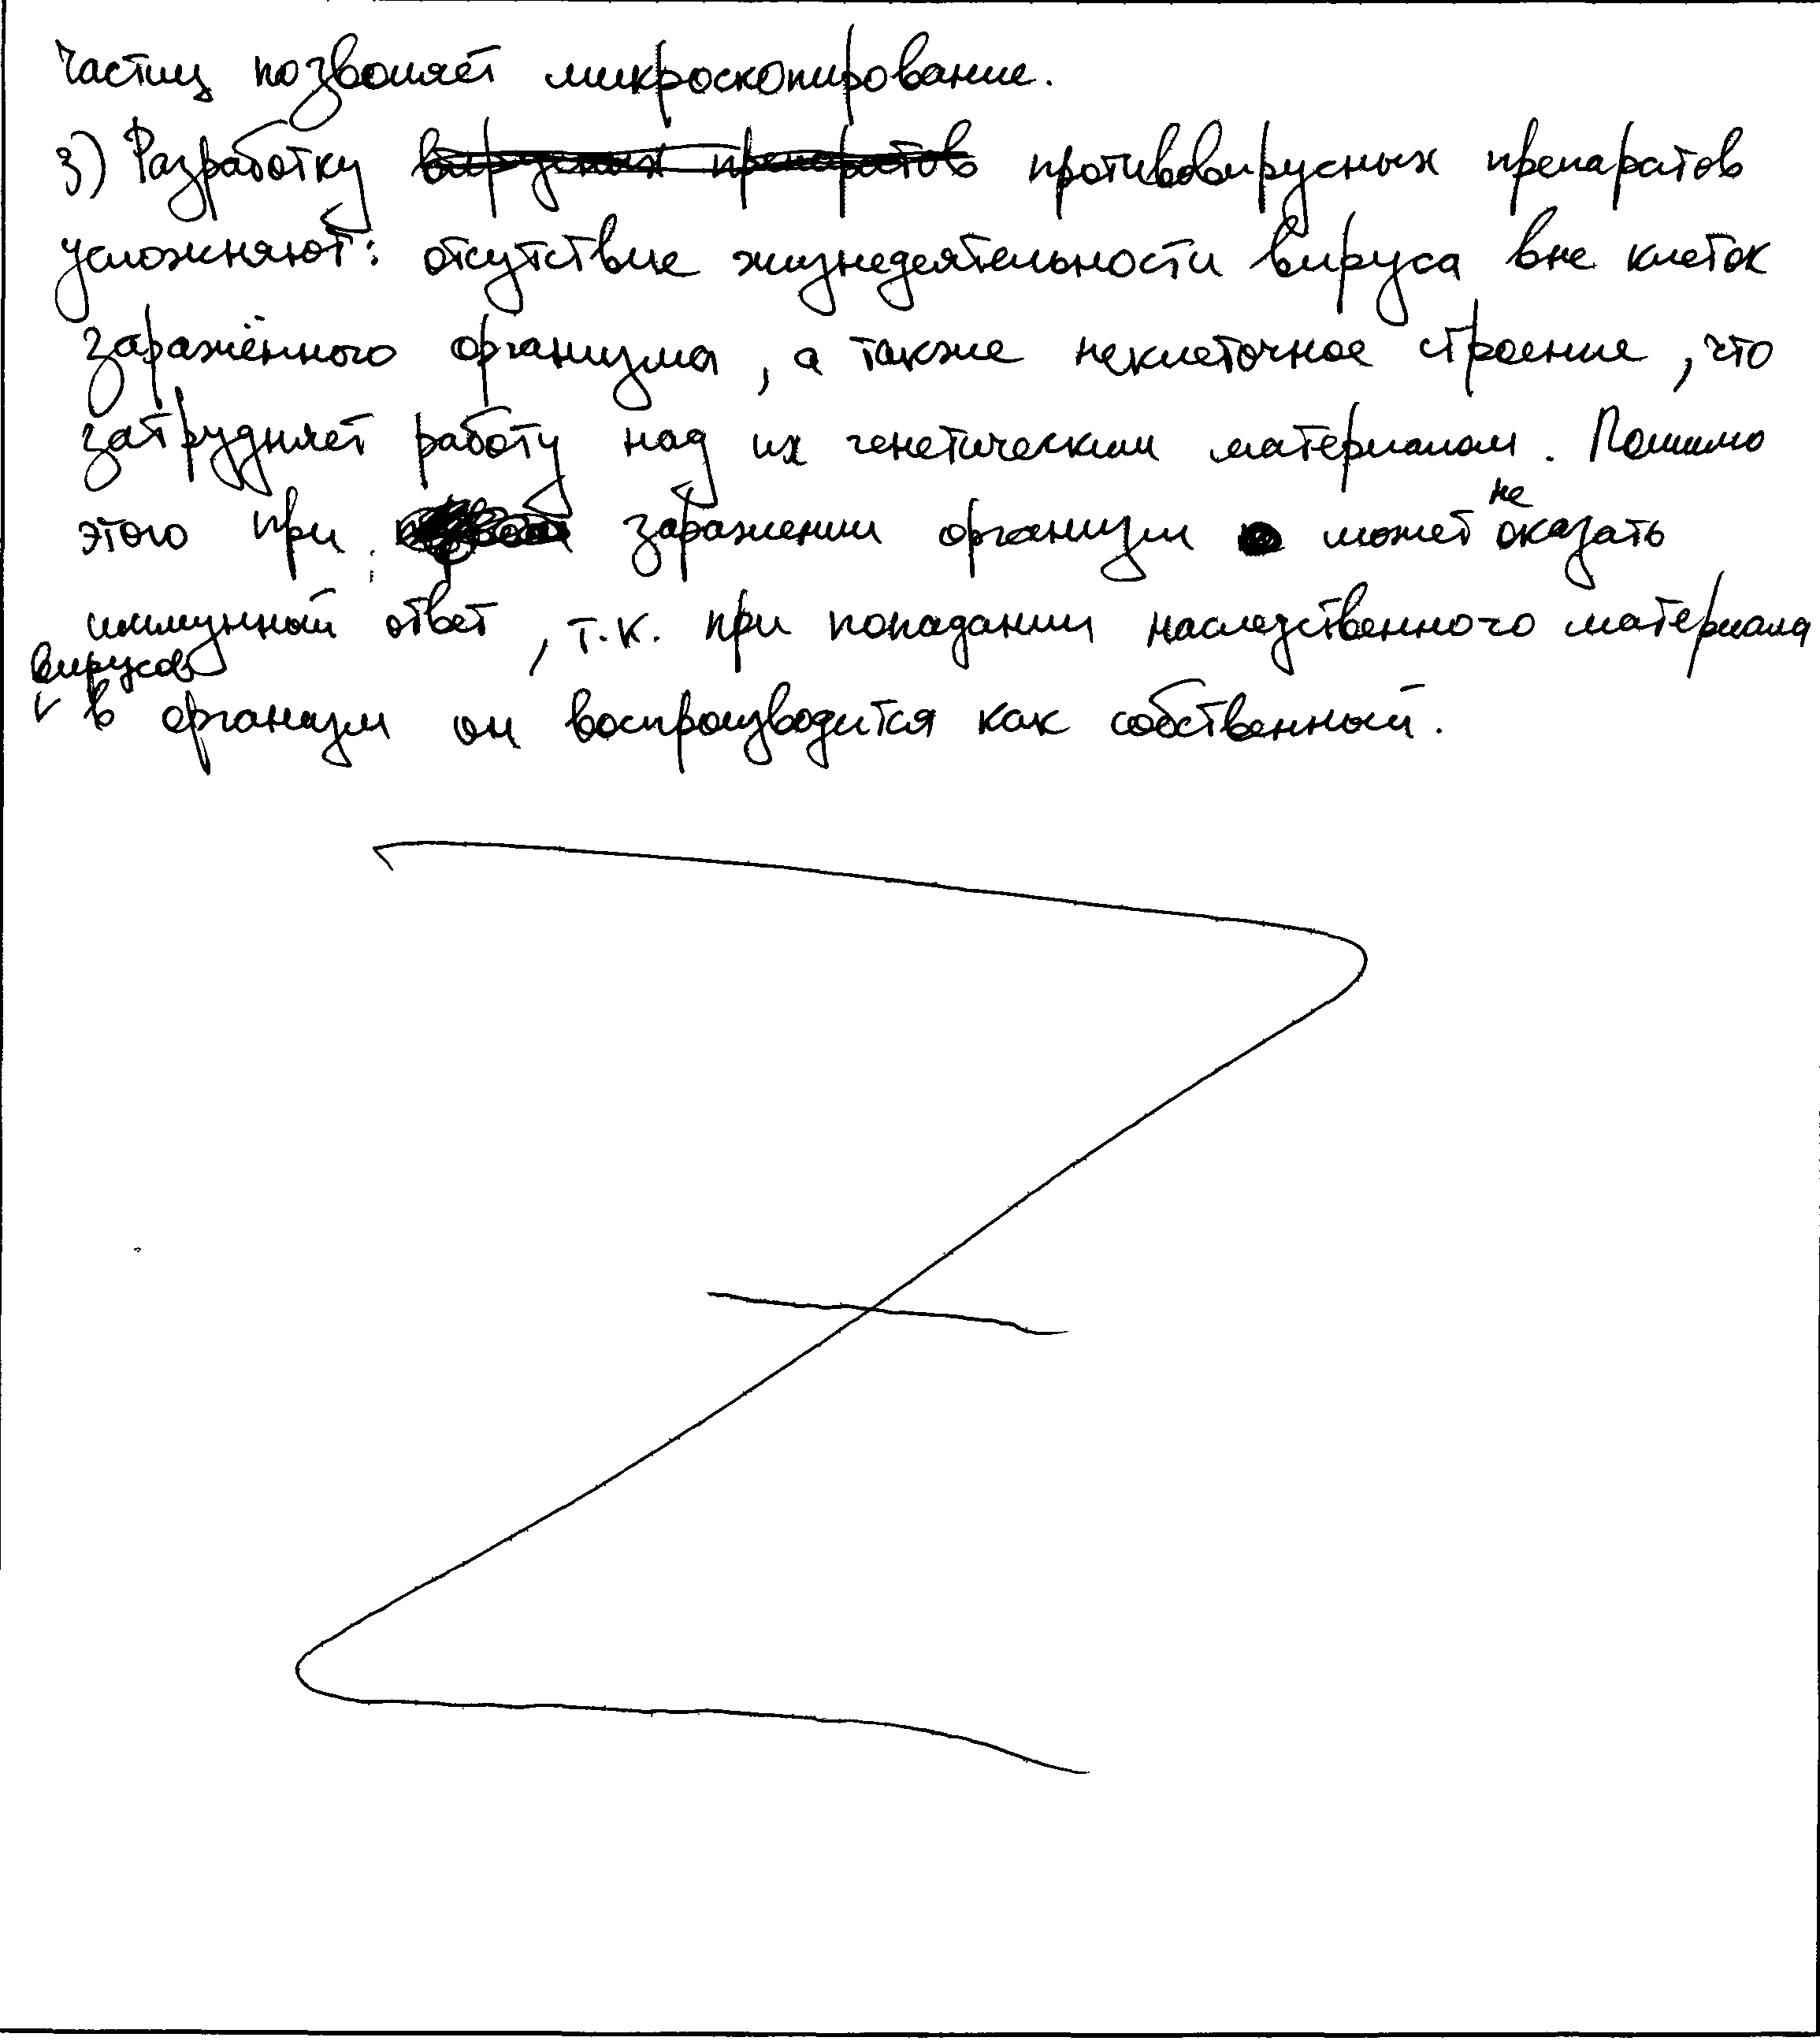 частиц позволяет микроскопирование.
3) Разработку вирусных препаратов противовирусных препаратов
усложняют: отсутствие жизнедеятельности вируса вне клеток
заражённого организма, а также неклеточное строение, что
затрудняет работу над их генетическим материалом. Помимо
этого при заражении организм может не оказать
иммунный ответ, т.к. при попадании наследственного материала
вирусов
в организм он воспроизводится как собственный.